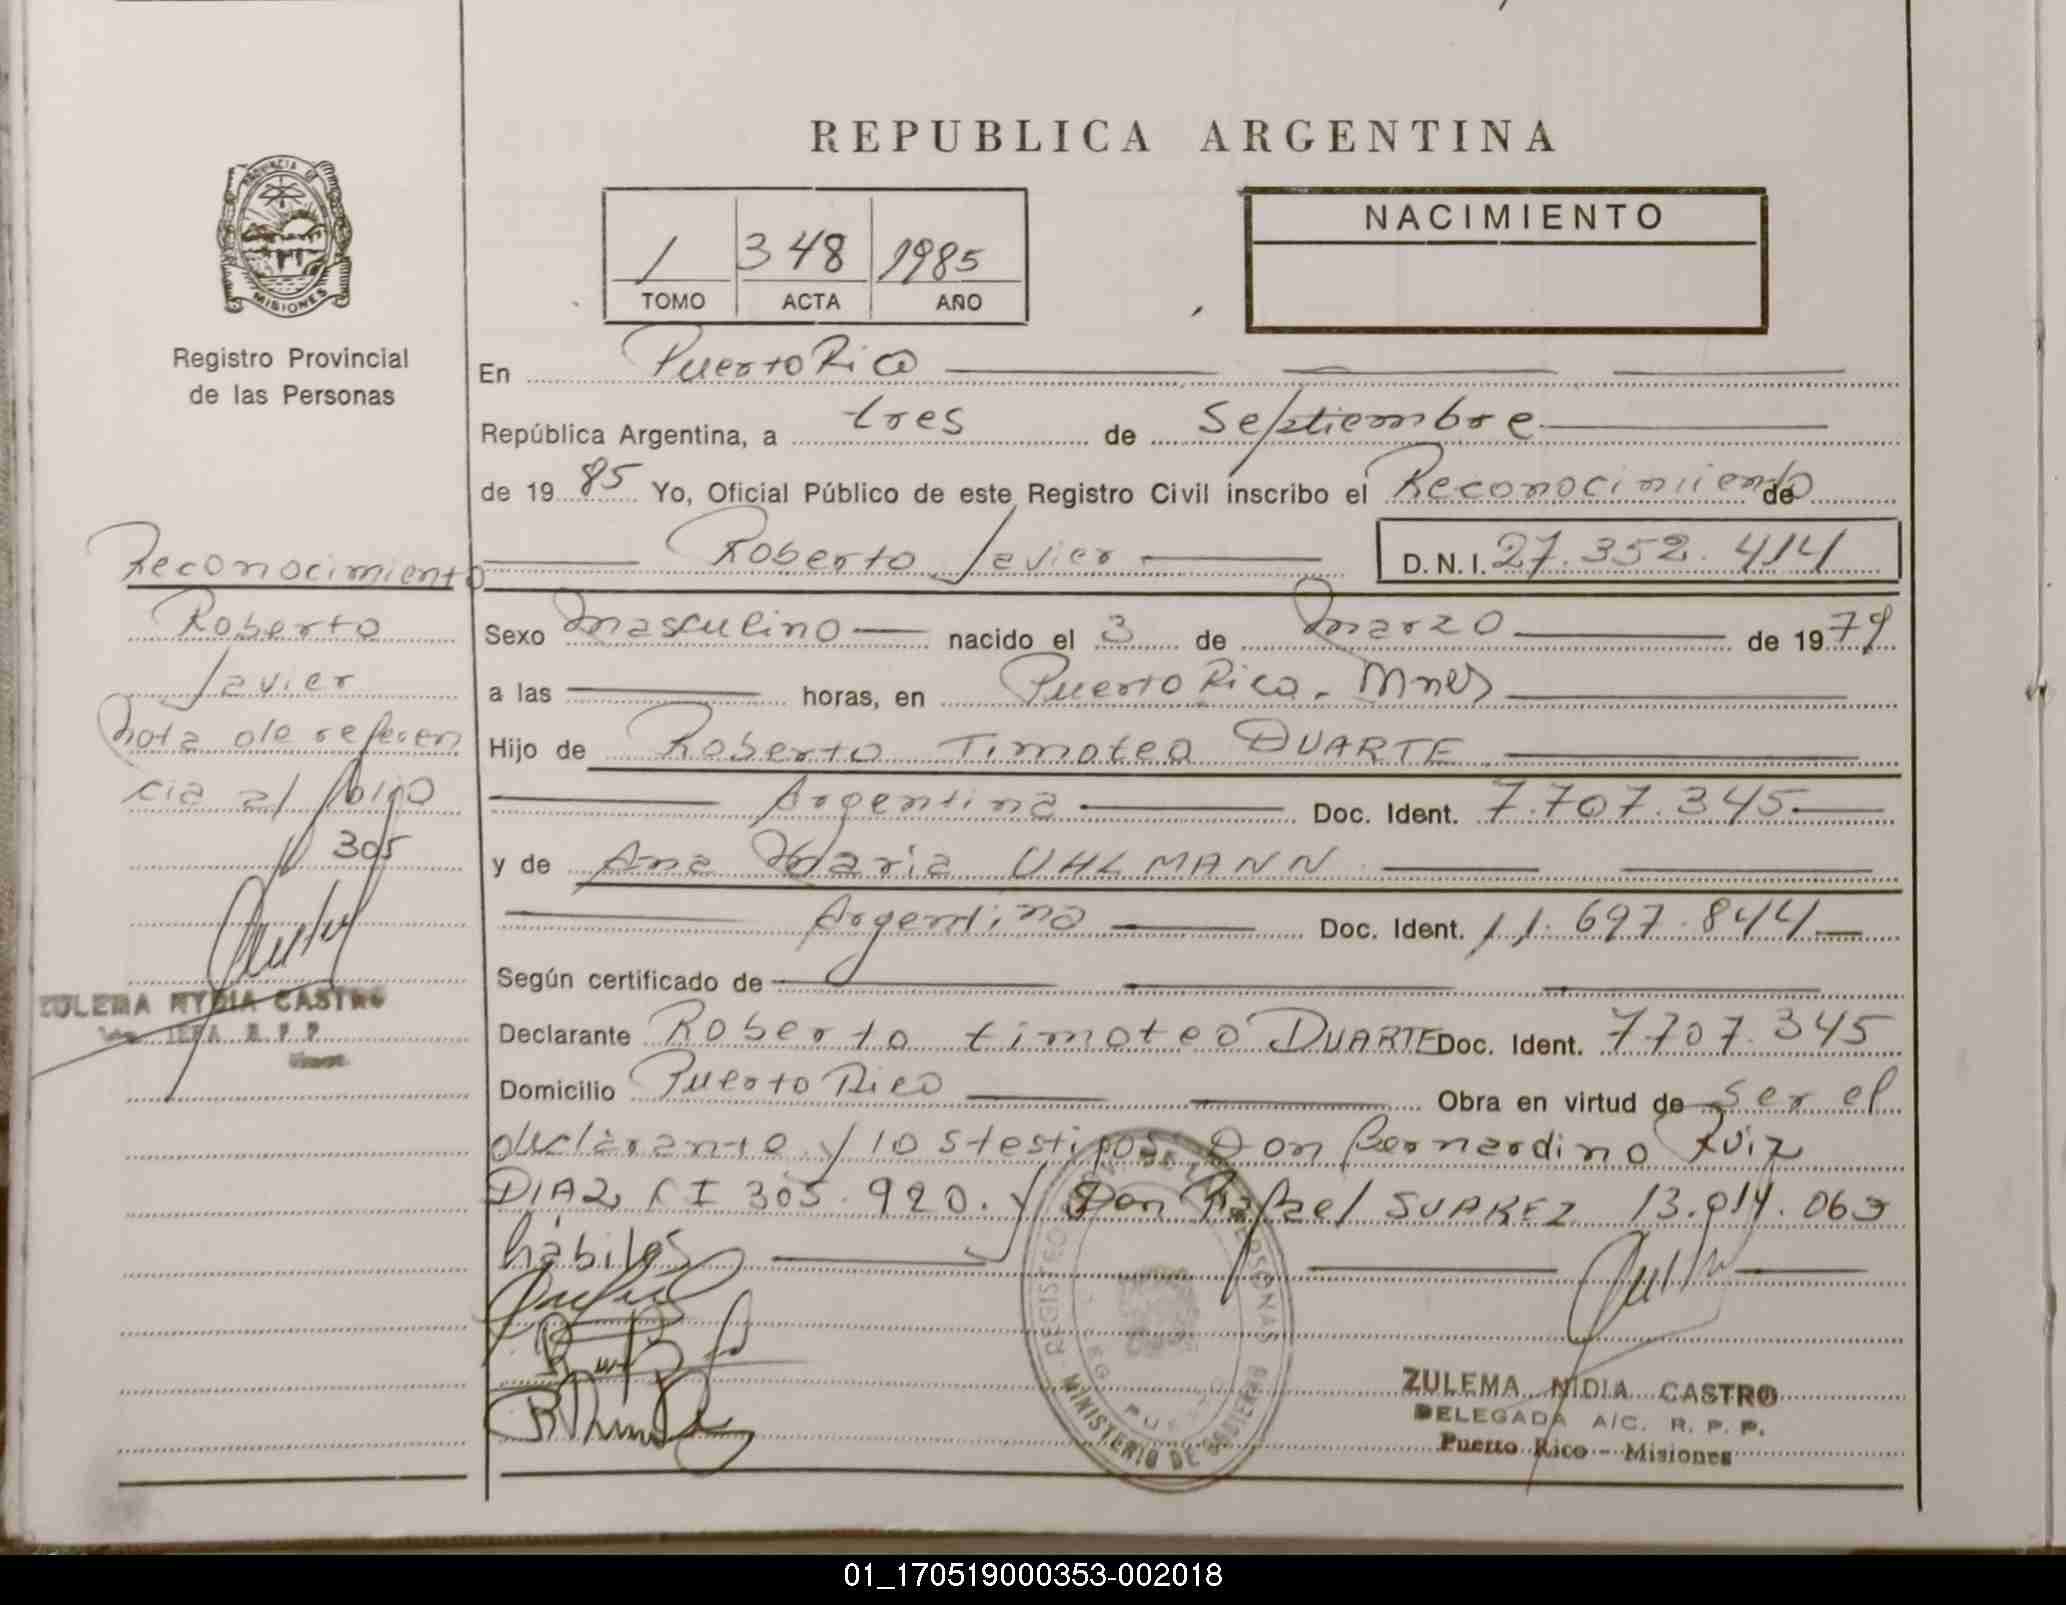 REPUBLICA ARGENTINA
PROVINCIA DE
MISIONES
Registro Provincial
de las Personas
1 348 1985
TOMO ACTA AÑO
NACIMIENTO
En Puerto Rico
República Argentina, a tres de Septiembre
de 1985 Yo, Oficial Público de este Registro Civil inscribo el Reconocimiento de
Roberto Javier D.N.I. 27.352.414
Sexo Masculino nacido el 3 de Marzo de 1979
a las horas, en Puerto Rico - Mnes
Hijo de Roberto Timoteo DUARTE
Argentina Doc. Ident. 7.707.345
y de Ana Maria UHLMANN
Argentina Doc. Ident. 11.697.844
Según certificado de
Declarante Roberto timoteo DUARTE Doc. Ident. 7707.345
Domicilio Puerto Rico Obra en virtud de ser el
declarante y los testigos Don Bernardino Ruiz
DIAZ CI 305.920. y Don Rafael SUAREZ 13.014.063
hábiles
Reconocimiento
Roberto
Javier
Nota de referen
cia al folio
305
ZULEMA NYDIA CASTRO
R. P. P.
REGISTRO PERSONAS
MINISTERIO DE GOBIERNO
ZULEMA NIDIA CASTRO
DELEGADA A/C. R. P. P.
Puerto Rico - Misiones
01_170519000353-002018